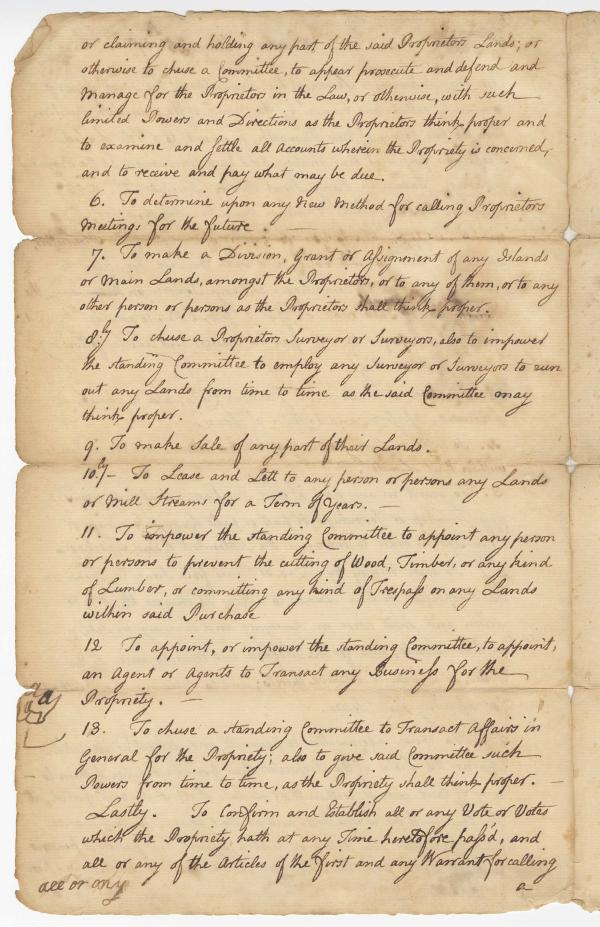 or claiming and holding any part of the said Proprietors Lands; or
otherwise to chuse a Committee, to appear prosecute and defend and
Manage for the Proprietors in the Law, or otherwise, with such
limited Powers and Directions as the Proprietors think proper and
to examine and settle all Accounts wherein the Propriety is concerned,
and to receive and pay what may be due.
6. To determine upon any New Method for calling Proprietors
Meetings for the future. —
7. To make a Division, Grant or Assignment of any Islands
or Main Lands, amongst the Proprietors, or to any of them, or to any
other person or persons as the Proprietors shall think proper.
8.ly To chuse a Proprietors Surveyor or Surveyors, also to impower
the standing Committee to employ any Surveyor or Surveyors to run
out any Lands from time to time as the said Committee may
think proper.
9. To make Sale of any part of their Lands.
10.ly— To Lease and Lett to any person or persons any Lands
or Mill Streams for a Term of Years. —
11. To impower the standing Committee to appoint any person
or persons to prevent the cutting of Wood, Timber, or any kind
of Lumber, or committing any kind of Trespass on any Lands
within said Purchase
12 To appoint, or impower the standing Committee, to appoint,
an Agent or Agents to Transact any Business for the
Propriety. —
13. To chuse a standing Committee to Transact Affairs in
General for the Propriety; also to give said Committee such
Powers from time to time, as the Propriety shall think proper. —
Lastly. To Confirm and Establish all or any Vote or Votes
which the Propriety hath at any Time heretofore pass'd, and
all or any of the Articles of the first and any Warrant for calling
all or any
a